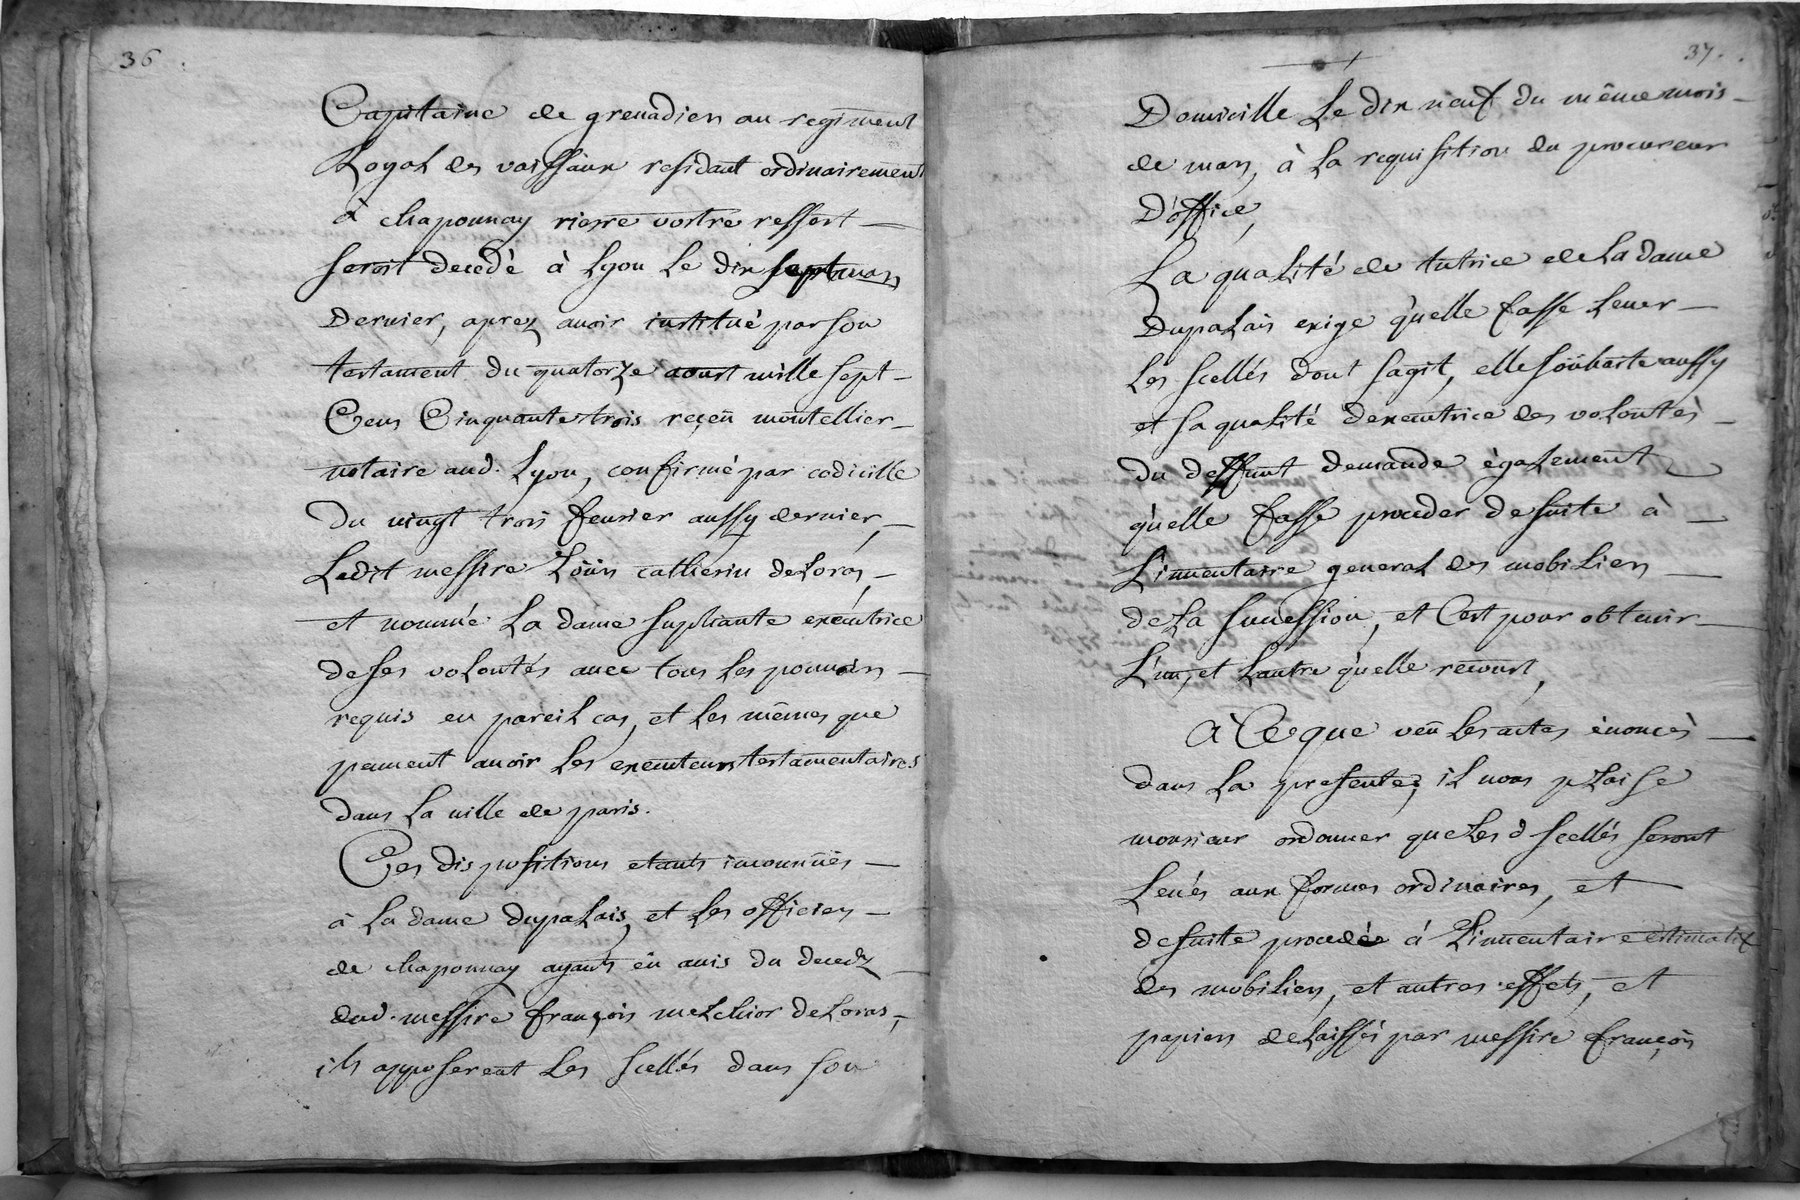 36
Capitaine de grenadiers au regiment
Royal des vaissaux residant ordinairement
à chaponnay riesre vostre ressort
seroit decedé à Lyon le dix sept mars
dernier, aprez avoir institué par son
testament du quatorze aoust mille sept
Cens Cinquante trois reçeu montellier
notaire aud. Lyon, confirmé par codicille
du vingt trois feurier aussy dernier,
Ledit messire Loüis catherin deloras,
et nommé la dame supliante executrice
de ses volontés auec tous les pouuoirs
requis en pareil cas, et les mêmes que
peuuent auoir les executeurs testamentaires
dans la uille de paris.
Ces dispositions etants inconnuës
à la dame dupalais, et les officiers
de chaponnay ayants eü auis du decedz
dud. messire françois melchior deloras,
ils apposerent les scellés dans son
37.
Domicille le dix neuf du même mois
de mars, à la requisition du procureur
D'office,
La qualité de tutrice de la dame
Dupalais exige qu'elle fasse leuer
les scellés dont sagit, elle souhaite aussy
et sa qualité dexecutrice des volontés
du deffunt demande également
qu'elle fasse proceder de suite à
L'inuentaire general des mobiliers
de la succession, et C'est pour obtenir
L'un, et Lautre qu'elle recourt,
à Ce que veu les actes énoncés
dans la presente, il uous plaise
monsieur ordonner que les d scellés seront
leués aux formes ordinaires, et
de suite procedé à L'inuentaire estimatif
des mobiliers, et autres effets, et
papiers delaissés par messire françois